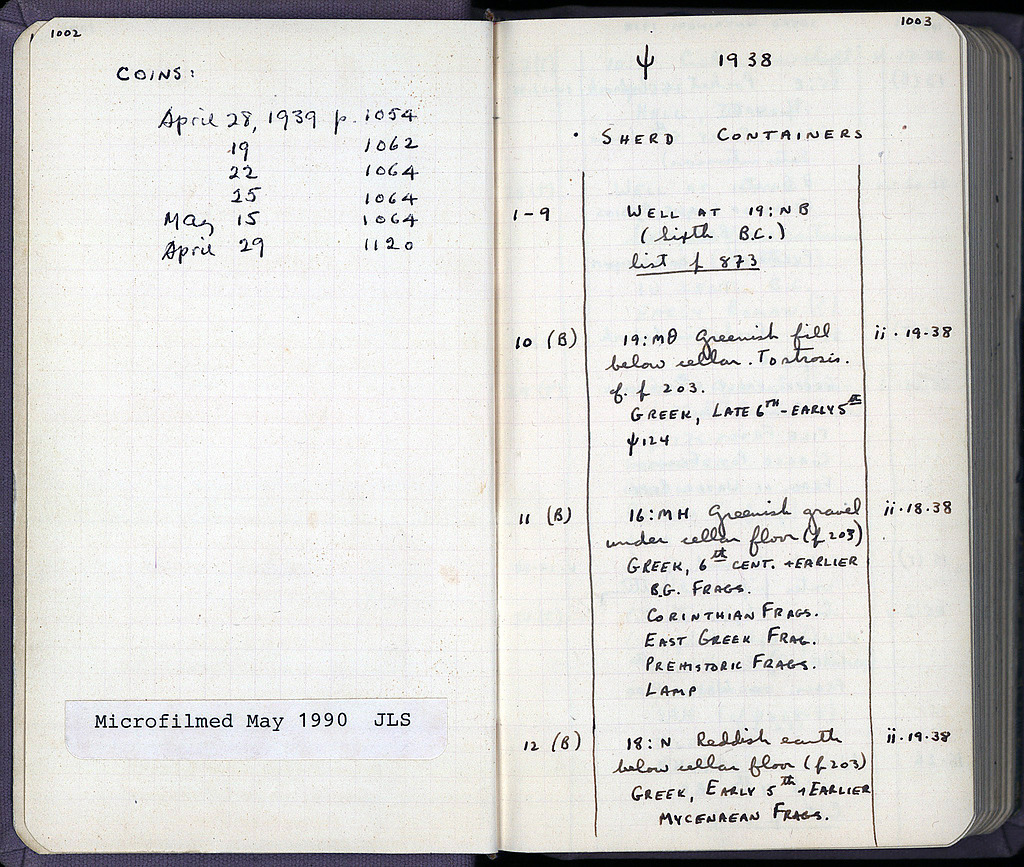 1002
COINS:
April 28, 1939 p. 1054
19 1062
22 1064
25 1064
May 15 1064
April 29 1120
Microfilmed May 1990 JLS
1003
ψ 1938
SHERD CONTAINERS
1-9 WELL AT 19:NB
(sixth B.C.)
list p 873
10 (B) 19:MΘ Greenish fill ii·19·38
below cellar. To strosis.
cf. p 203.
GREEK, LATE 6TH - EARLY 5th
ψ124
11 (B) 16:MH Greenish gravel ii·18·38
under cellar floor (p 203)
GREEK, 6th CENT. + EARLIER
B.G. FRAGS.
CORINTHIAN FRAGS.
EAST GREEK FRAG.
PREHISTORIC FRAGS.
LAMP
12 (B) 18:N Reddish earth ii·19·38
below cellar floor (p 203)
GREEK, EARLY 5th + EARLIER
MYCENAEAN FRAGS.